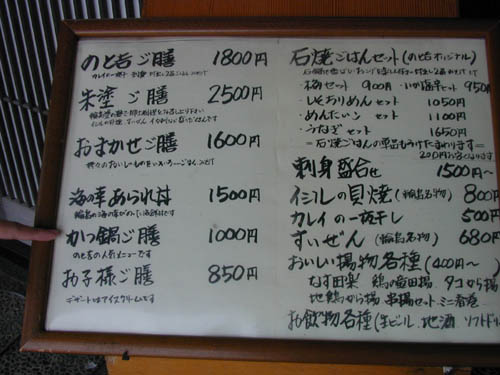 のと吉ご膳 1800円
朱塗ご膳 2500円
おまかせご膳 1600円
海の幸あられ丼 1500円
かつ鍋ご膳 1000円
のと吉の人気メニューです
お子様ご膳 850円
デザートはアイスクリームです
石焼ごはんセット(のと吉オリジナル)
・梅セット 900円 ・いか塩辛セット 950円
・しそおりめんセット 1050円
・めんたいこセット 1100円
・うなぎセット 1650円
=石焼ごはんの単品もうけたまわります=
200円お安くなります
刺身盛合せ 1500円〜
イシルの貝焼(輪島名物) 800円
カレイの一夜干し 500円
すいぜん(輪島名物) 680円
おいしい揚物各種(400円〜)
なす田楽 鶏の竜田揚 タコから揚
地鶏から揚 串揚セット ミニ春巻
お飲物各種(生ビール 地酒 ソフトドリ